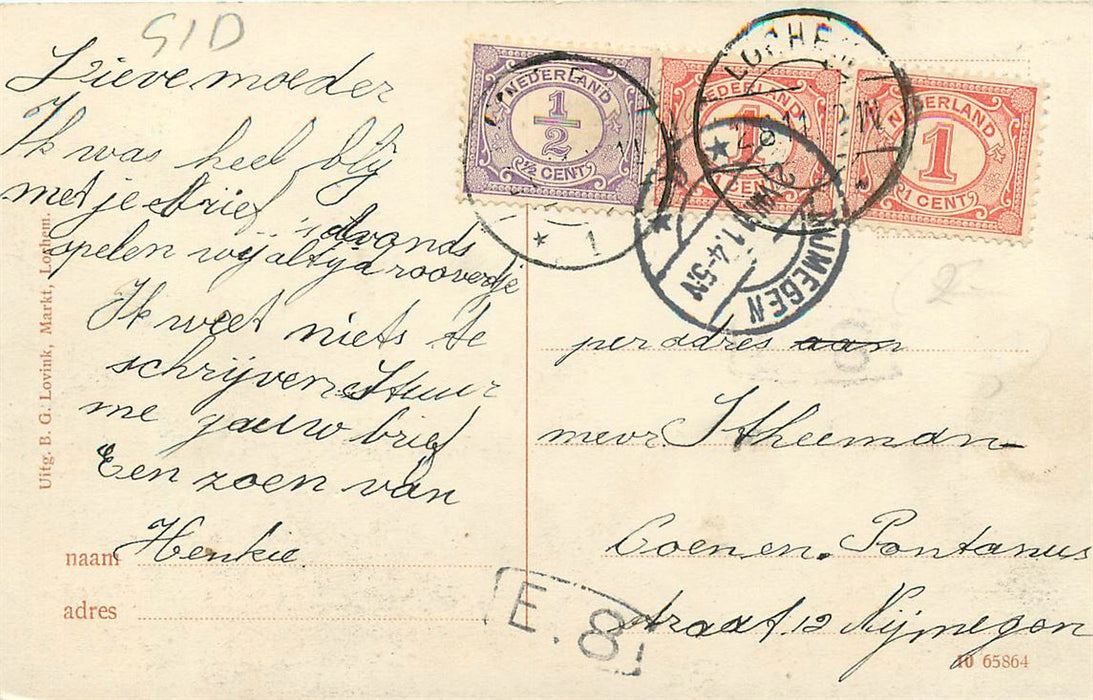 GID
Lieve moeder
Ik was heel blij
met je brief. 's avonds
spelen wij altijd roovertje
Ik weet niets te
schrijven. Stuur
me jouw brief
Een zoen van
naam Henkie.
adres
Uitg. B. G. Lovink, Markt, Lochem.
NEDERLAND
1/2
½ CENT
NEDERLAND
1
1 CENT
NEDERLAND
1
1 CENT
LOCHEM
1
NIJMEGEN
4-5N
2-
per adres aan
mevr. Ktheeman
Coenen. Pontanus
straat. 12 Nijmegen
E. 8
10 65864